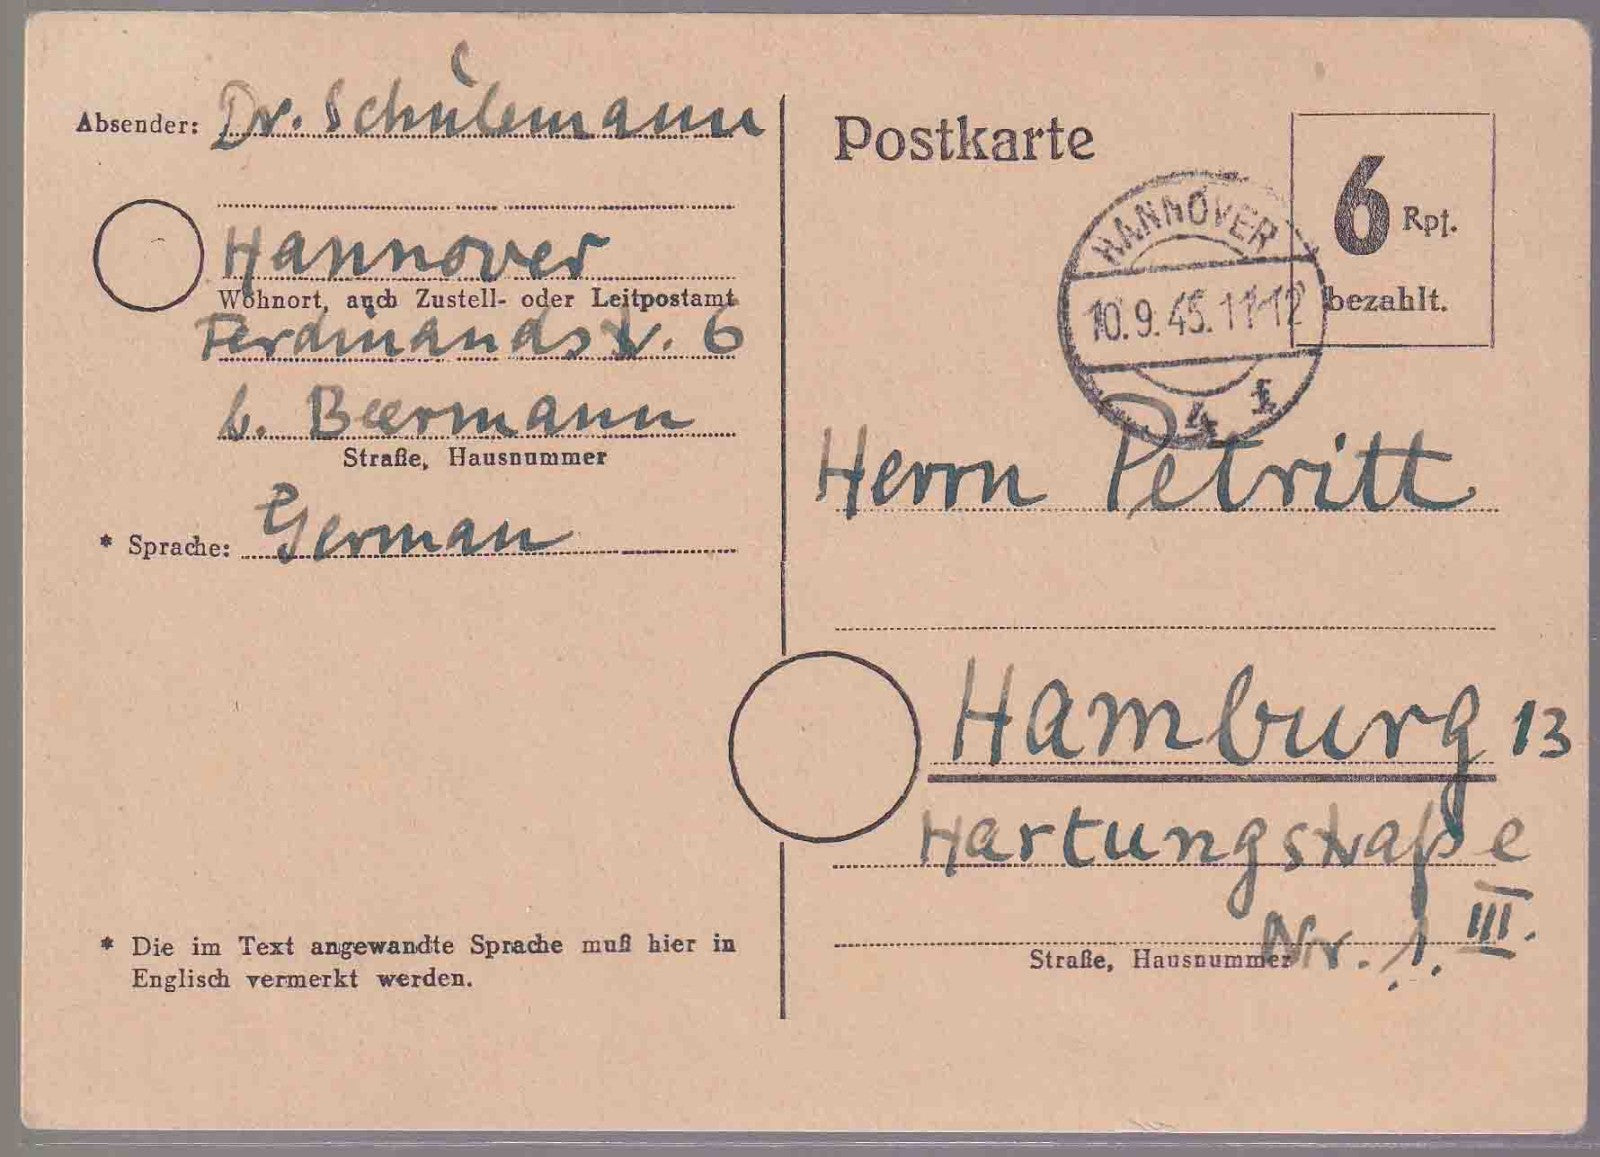 Absender: Dr. Schülemann
Hannover
Wohnort, auch Zustell- oder Leitpostamt
Ferdinandstr. 6
b. Beermann
Straße, Hausnummer
* Sprache: German
* Die im Text angewandte Sprache muß hier in
Englisch vermerkt werden.
Postkarte
6 Rpf.
bezahlt.
HANNOVER
10.9.45.11-12
4
Herrn Petritt
Hamburg 13
Hartungstraße
Nr. 1. III.
Straße, Hausnummer